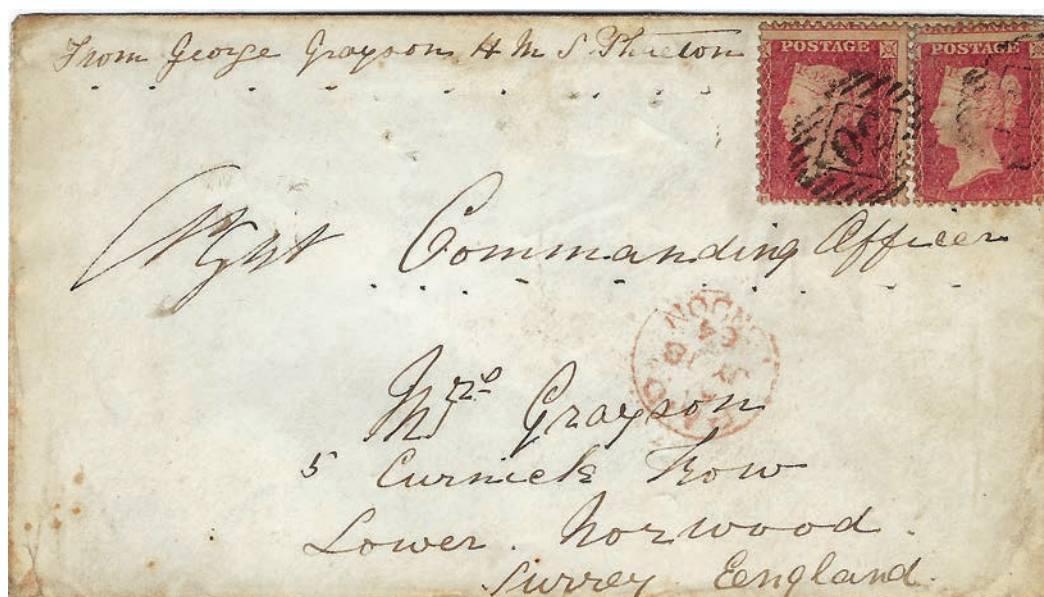 From George Grayson H M S Phaeton
POSTAGE POSTAGE
Commanding Officer
LONDON
PAID
Mrs Grayson
5 Curnick Row
Lower. Norwood.
Surrey. Eengland.